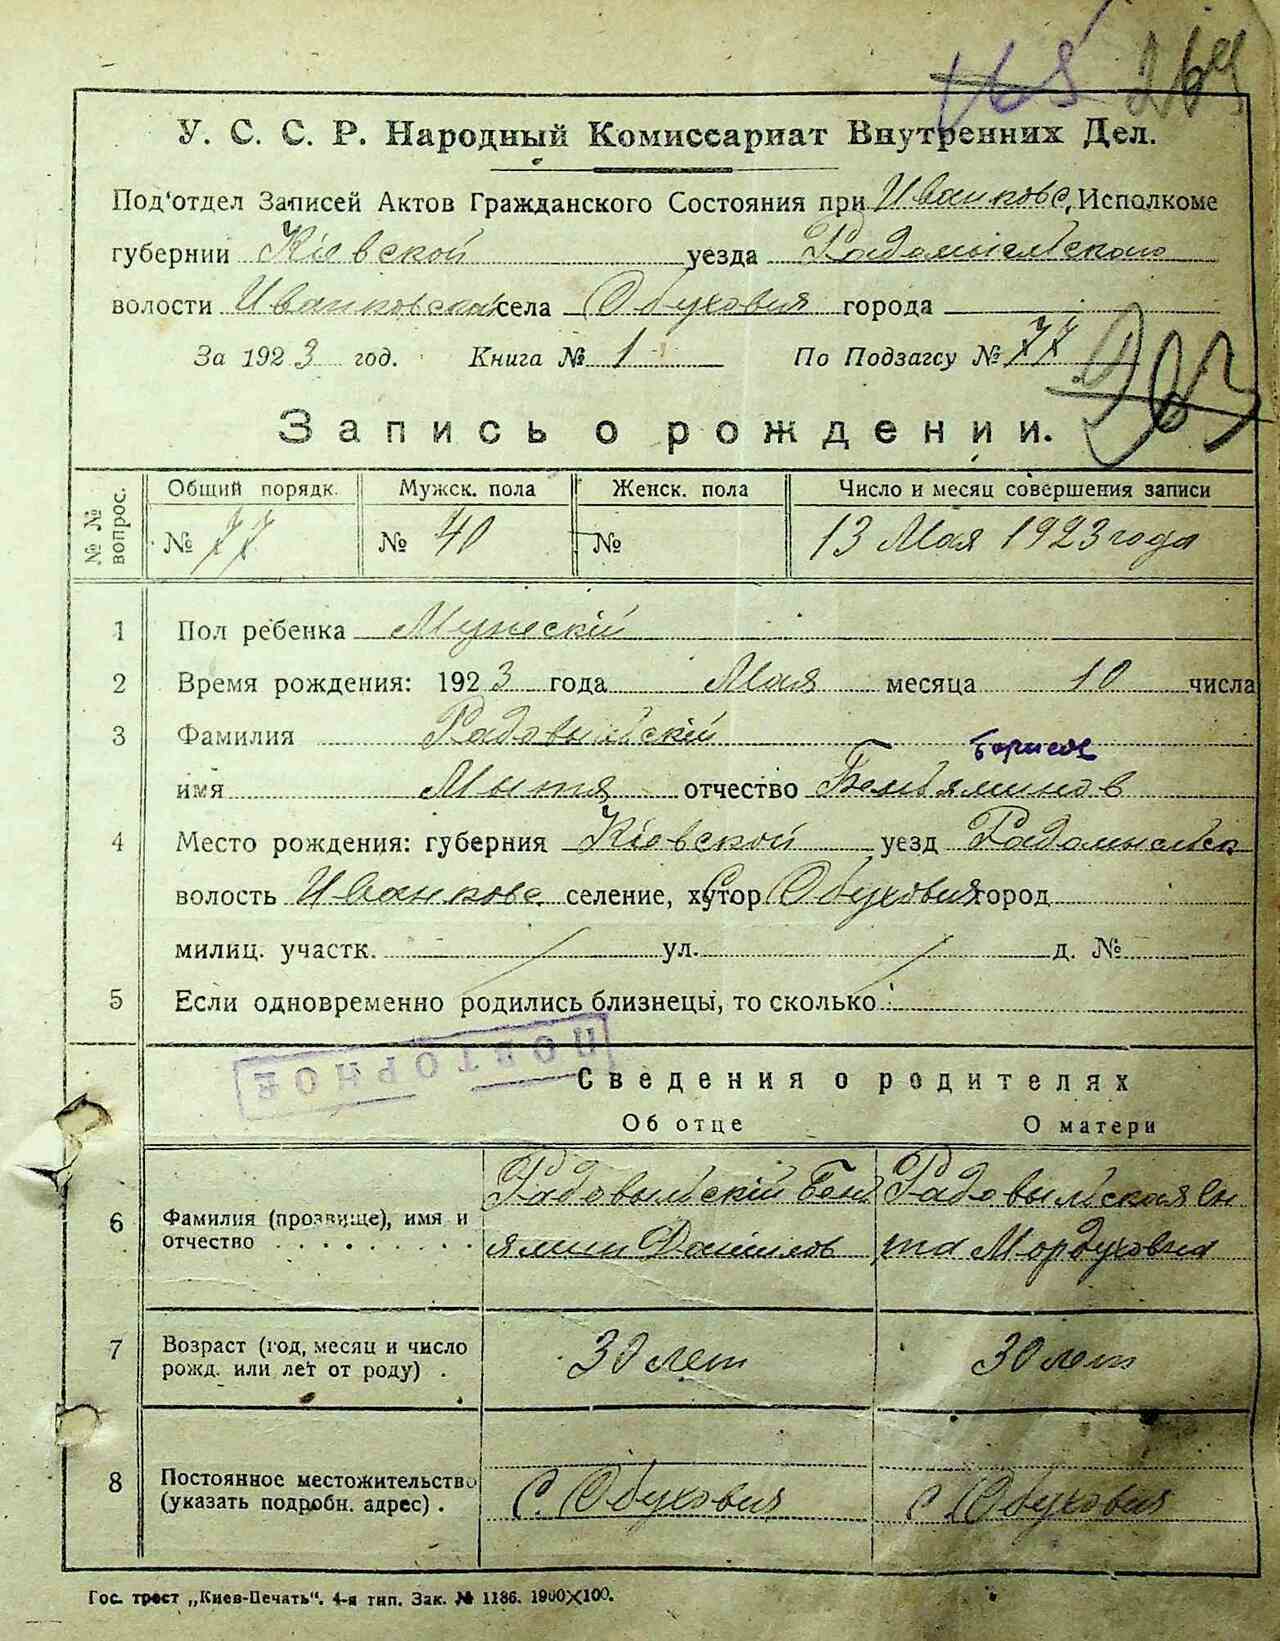 165 264
У. С. С. Р. Народный Комиссариат Внутренних Дел.
Под'отдел Записей Актов Гражданского Состояния при Иванковс. Исполкоме
губернии Кіевской уезда Радомысльского
волости Иванковской села Обуховия города
За 1923 год. Книга № 1 По Подзагсу № 77
203
Запись о рождении.
№ № вопрос. Общий порядк. Мужск. пола Женск. пола Число и месяц совершения записи
№ 77 № 40 № 13 Мая 1923 года
1 Пол ребенка Мужескій
2 Время рождения: 1923 года Мая месяца 10 числа
3 Фамилия Радовыльскій
Борисов
имя Мытя отчество Беньяминов
4 Место рождения: губерния Кіевской уезд Радомысльск
волость Иванковс. селение, хутор Обуховия город
милиц. участк. ул. д. №
5 Если одновременно родились близнецы, то сколько
ПОВТОРНОЕ
Сведения о родителях
Об отце О матери
6 Фамилия (прозвище), имя и отчество Радовыльскій Беньямин Данилов Радовыльская Ента Мордуховна
7 Возраст (год, месяц и число рожд. или лет от роду) . 30 лет 30 лет
8 Постоянное местожительство (указать подробн. адрес) . С. Обуховия с. Обуховия
Гос. трест „Киев-Печать". 4-я тип. Зак. № 1186. 1900X100.